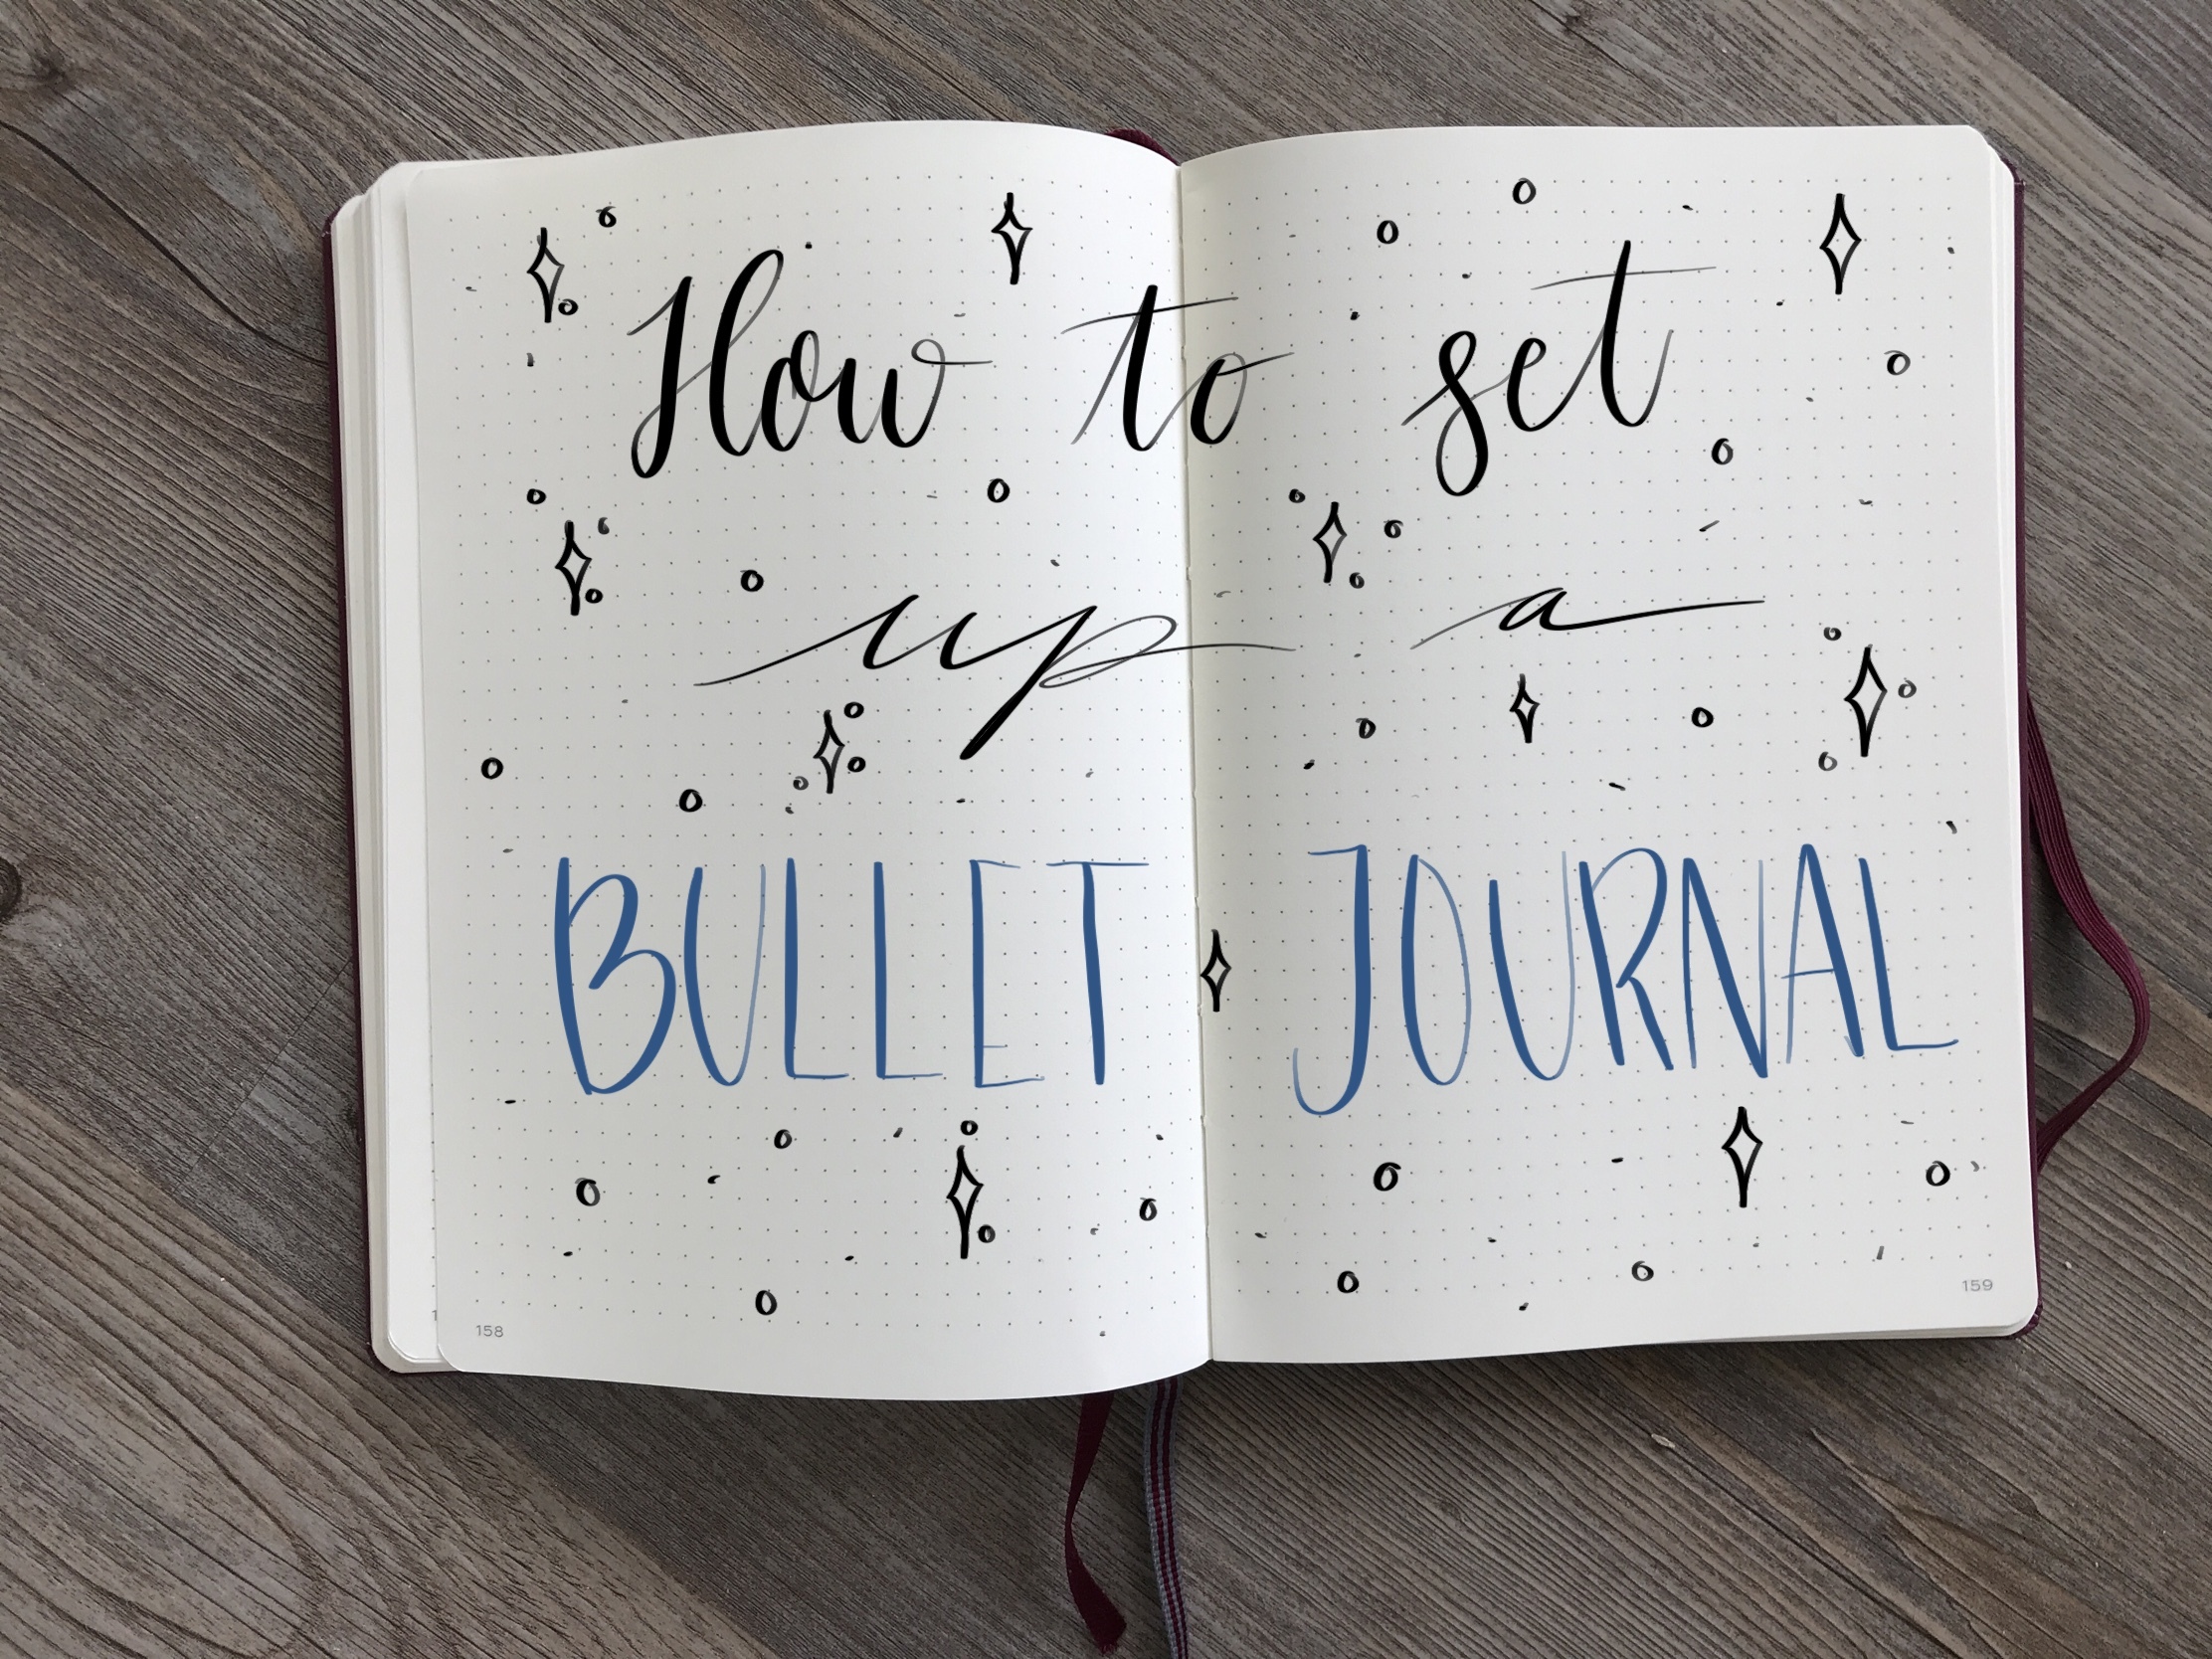 How to set
up a
BULLET JOURNAL
158
159